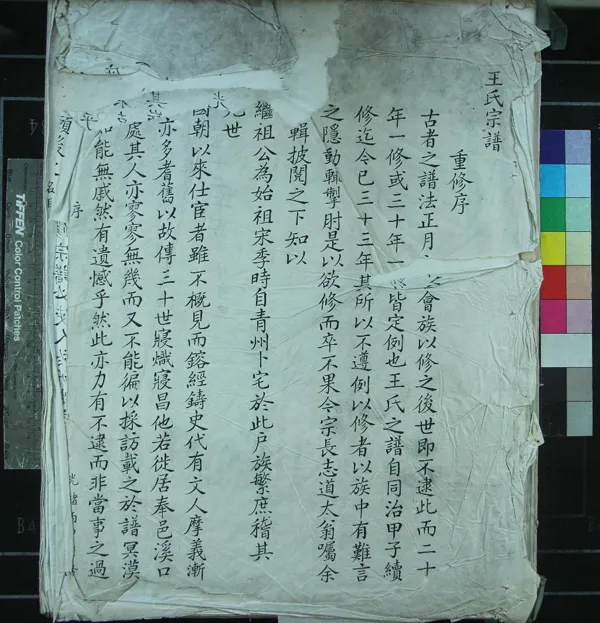 王氏宗譜
重修序
古者之譜法正月會族以修之後世即不逮此而二十
年一修或三十年一皆定例也王氏之譜自同治甲子續
修迄今已三十三年其所以不遵例以修者以族中有難言
之隱動輒掣肘是以欲修而卒不果今宗長志道太翁囑余
輯披閱之下知以
繼祖公為始祖宋季時自青州卜宅於此戶族繁庶稽其
世
國朝以來仕宦者雖不概見而鎔經鑄史代有文人摩義漸
亦多耆舊以故傳三十世寢熾寢昌他若徙居奉邑溪口
處其人亦寥寥無幾而又不能徧以採訪載之於譜冥漠
能無慼然有遺憾乎然此亦力有不逮而非當事之過
乎
序
光緒
TIFFEN Color Control Patches